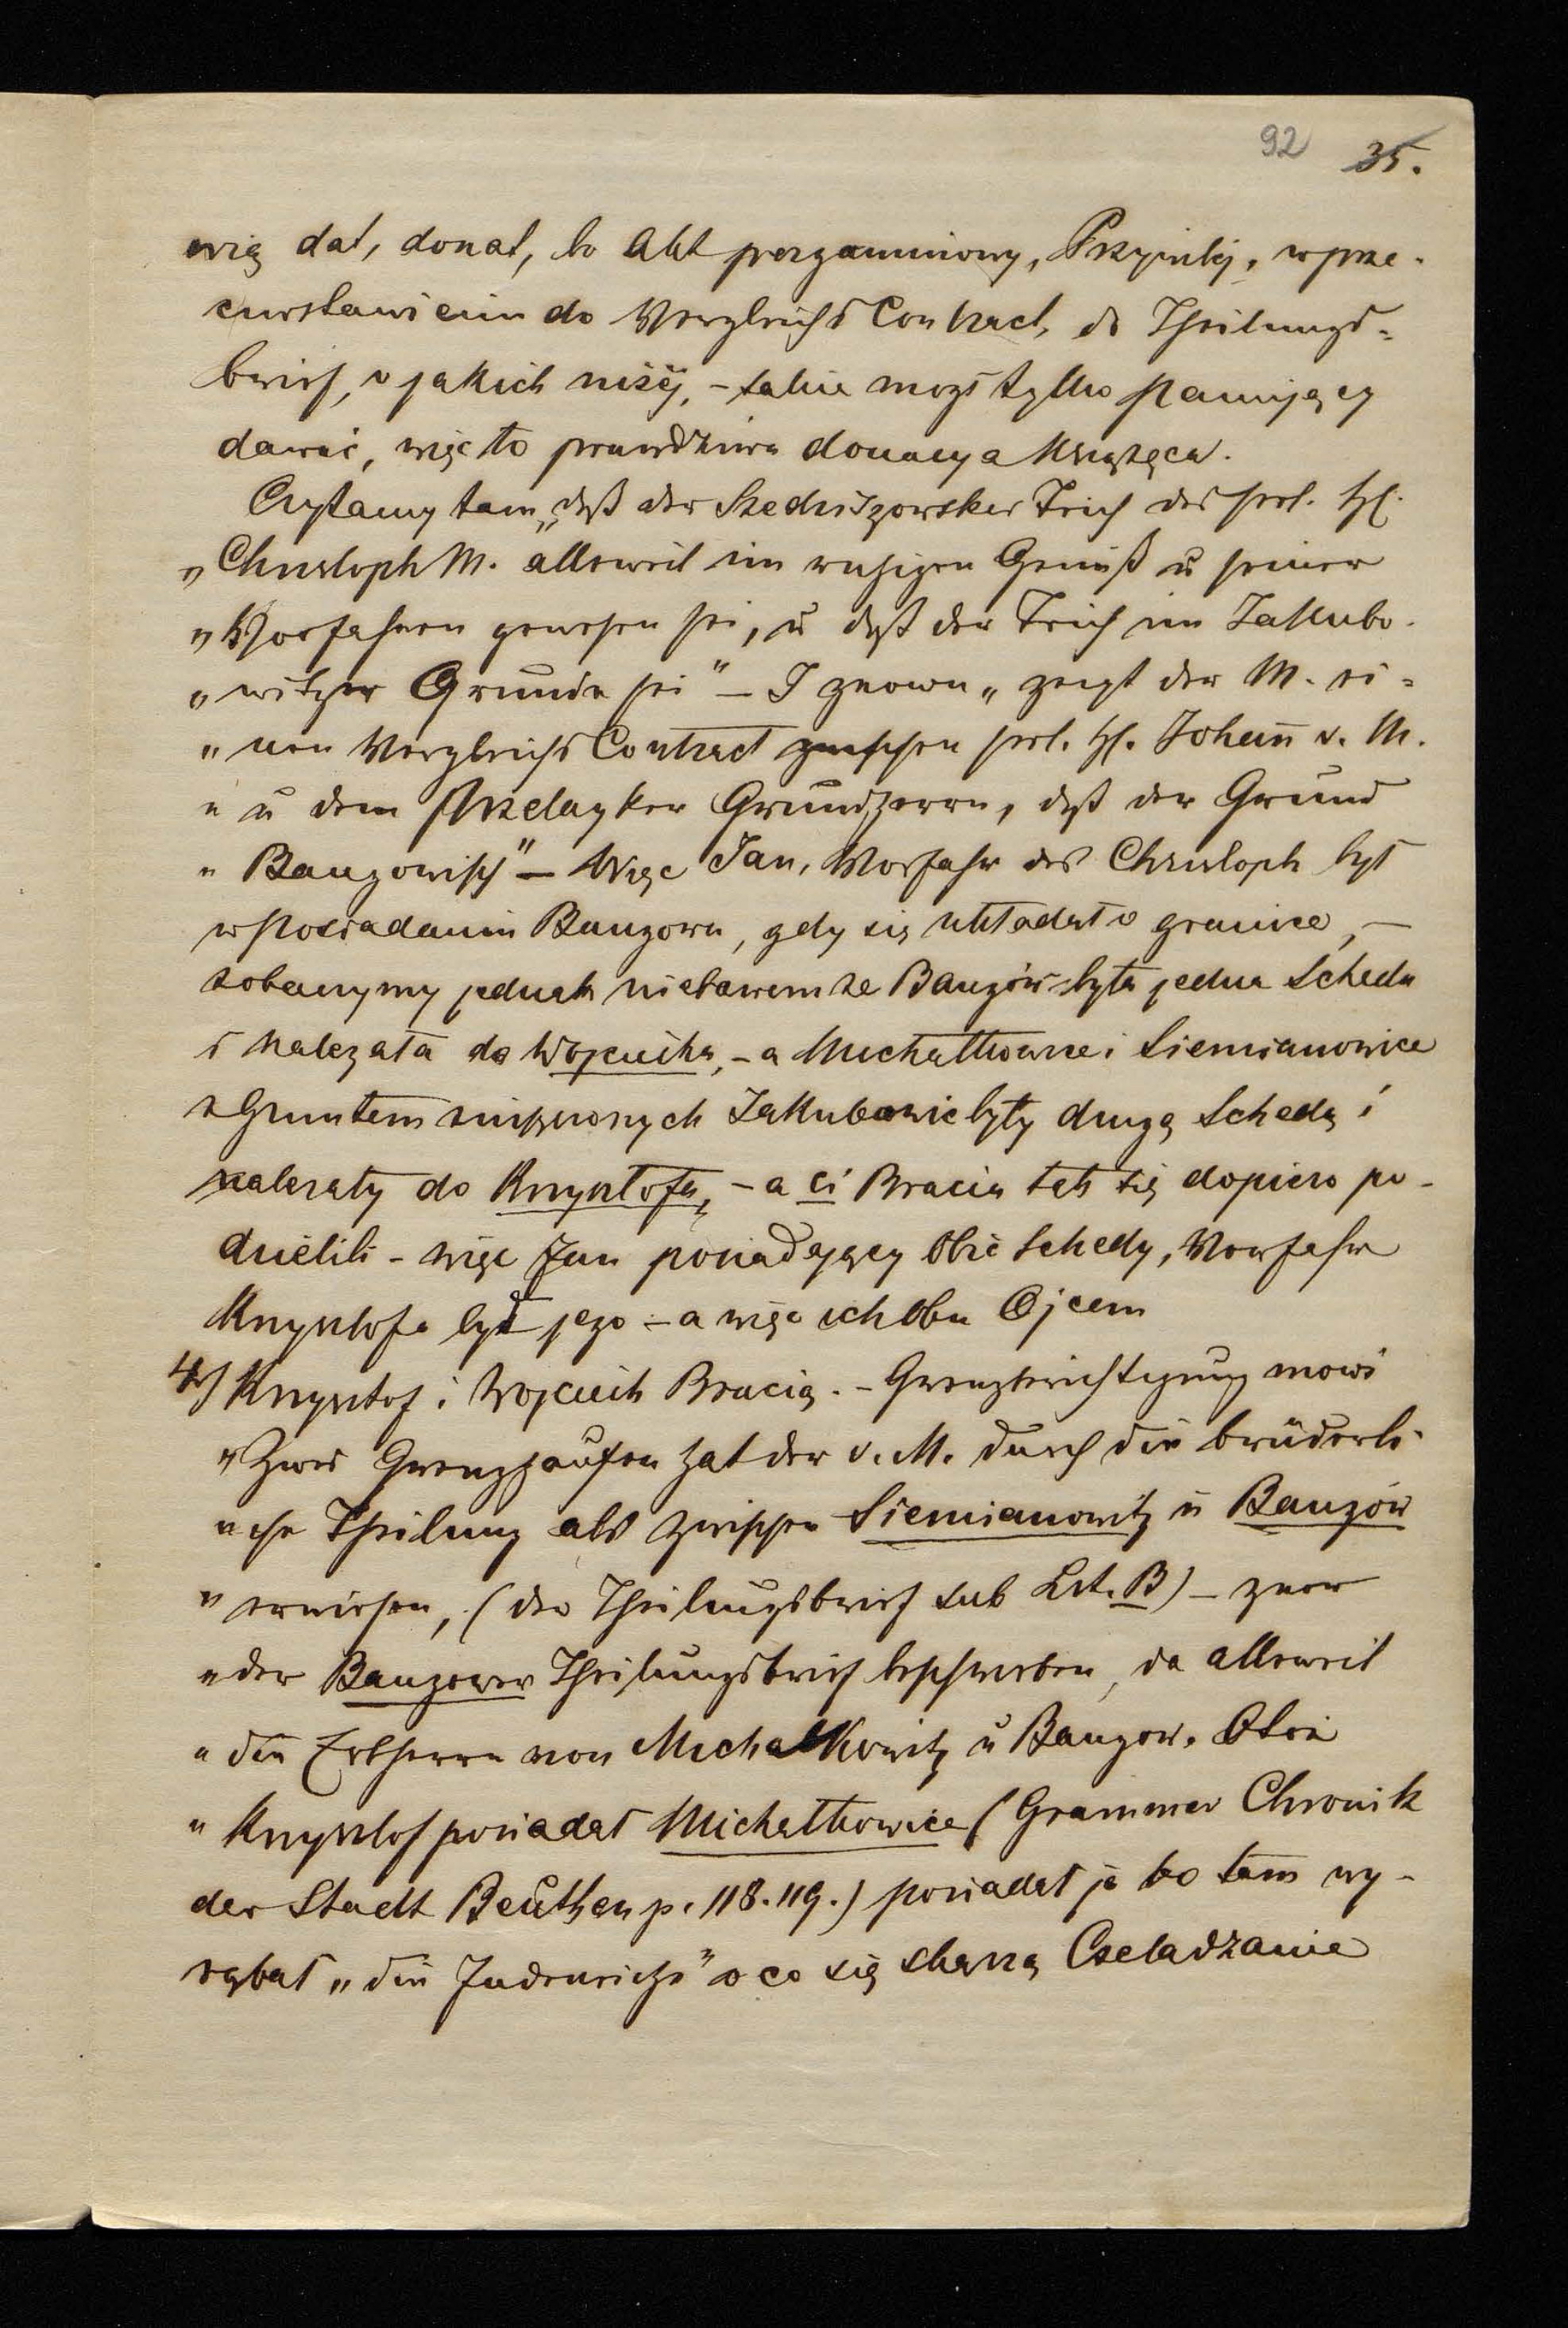 92 35.
wię dał, donat, bo Akt pergaminowy, Przywilej, w prze-
ciwstawieniu do Vergleichs Contract, do Theilungs-
brief, o jakich niżéj, – takie mógł tylko panujący
dawać, więc to prawdziwa donacya książęca.
Czytamy tam, „daß der Szedriszowsker Teich des sel. H.
„Christoph M. alleweil im ruhigen Genuß u seiner
„Vorfahren gewesen sei, u daß der Teich im Jakubo-
„witzer Grunde sei" – I znowu „zeigt der M. ei-
„nen Vergleichs Contract zwischen sel. H. Johann v. M.
„u dem Przelayker Grundherrn, daß der Grund
„Bangowisch" – Więc Jan, Vorfahr des Christoph był
w posiadaniu Bangowa, gdy się układał o granice, –
zobaczymy jednak niebawem że Bangów była jedna Scheda
i należała do Wojciecha, – a Michałkowice i Siemianowice
z Gruntem Jakubowic były drugą Schedą i
należały do Krzysztofa, – a ci Bracia tak się dopiero po-
dzielili – więc Jan posiadający obie Schedy, Vorfahr
Krzysztofa był jego – a więc ich obu Ojcem
4) Krzysztof i Wojciech Bracia. – Grenzberichtigung mowi
„Zwei Grenzhaufen hat der v. M. durch die brüderli-
„che Theilung als zwischen Siemianowitz u Bangów
„erwiesen, (den Theilungsbrief sub Lit. B) –
„der Bangower Theilungsbrief da alleweil
„die Erbherrn von Michalkowitz u Bangow.
„Krzysztof posiadał Michałkowice (Grammer Chronik
der Stadt Beuthen p. 118. 119.) posiadał je bo tam wy-
rąbał „die " o co się skarzą Czeladzanie